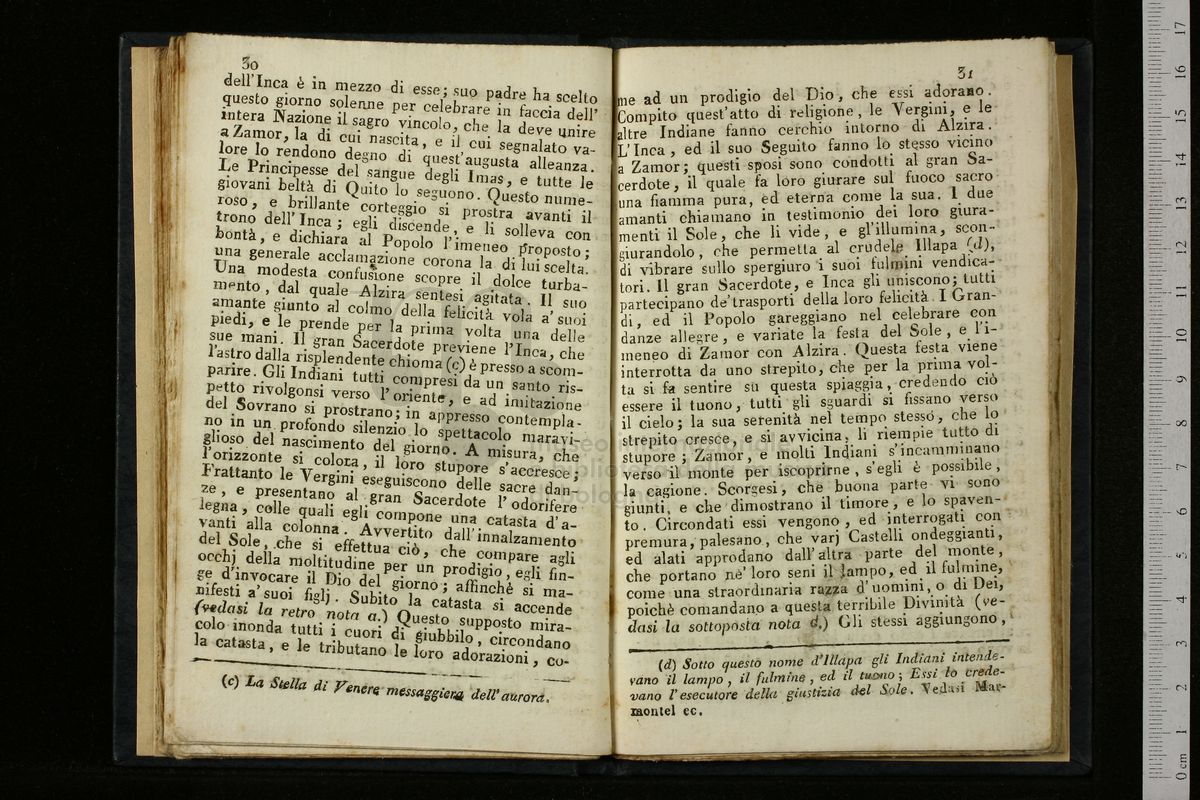 30
dell'Inca è in mezzo di esse; suo padre ha scelto
questo giorno solenne per celebrare in faccia dell'
intera Nazione il sagro vincolo, che la deve unire
a Zamor, la di cui nascita, e il cui segnalato va-
lore lo rendono degno di quest'augusta alleanza.
Le Principesse del sangue degli Imas, e tutte le
giovani beltà di Quito lo seguono. Questo nume-
roso, e brillante corteggio si prostra avanti il
trono dell'Inca; egli discende, e li solleva con
bontà, e dichiara al Popolo l'imeneo proposto;
una generale acclamazione corona la di lui scelta.
Una modesta confusione scopre il dolce turba-
mento, dal quale Alzira sentesi agitata. Il suo
amante giunto al colmo della felicità vola a' suoi
piedi, e le prende per la prima volta una delle
sue mani. Il gran Sacerdote previene l'Inca, che
l'astro dalla risplendente chioma (c) è presso a scom-
parire. Gli Indiani tutti compresi da un santo ris-
petto rivolgonsi verso l'oriente, e ad imitazione
del Sovrano si prostrano; in appresso contempla-
no in un profondo silenzio lo spettacolo maravi-
glioso del nascimento del giorno. A misura, che
l'orizzonte si colora, il loro stupore s'accresce;
Frattanto le Vergini eseguiscono delle sacre dan-
ze, e presentano al gran Sacerdote l'odorifere
legna, colle quali egli compone una catasta d'a-
vanti alla colonna. Avvertito dall'innalzamento
del Sole, che si effettua ciò, che compare agli
occhj della moltitudine per un prodigio, egli fin-
ge d'invocare il Dio del giorno; affinchè si ma-
nifesti a' suoi figlj. Subito la catasta si accende
(vedasi la retro nota a.) Questo supposto mira-
colo inonda tutti i cuori di giubbilo, circondano
la catasta, e le tributano le loro adorazioni, co-
(c) La Stella di Venere messaggiera dell'aurora.
31
me ad un prodigio del Dio, che essi adorano.
Compito quest'atto di religione, le Vergini, e le
altre Indiane fanno cerchio intorno di Alzira.
L'Inca, ed il suo Seguito fanno lo stesso vicino
a Zamor; questi sposi sono condotti al gran Sa-
cerdote, il quale fa loro giurare sul fuoco sacro
una fiamma pura, ed eterna come la sua. I due
amanti chiamano in testimonio dei loro giura-
menti il Sole, che li vide, e gl'illumina, scon-
giurandolo, che permetta al crudele Illapa (d),
di vibrare sullo spergiuro i suoi fulmini vendica-
tori. Il gran Sacerdote, e Inca gli uniscono; tutti
partecipano de' trasporti della loro felicità. I Gran-
di, ed il Popolo gareggiano nel celebrare con
danze allegre, e variate la festa del Sole, e l'i-
meneo di Zamor con Alzira. Questa festa viene
interrotta da uno strepito, che per la prima vol-
ta si fa sentire su questa spiaggia, credendo ciò
essere il tuono, tutti gli sguardi si fissano verso
il cielo; la sua serenità nel tempo stesso, che lo
strepito cresce, e si avvicina, li riempie tutto di
stupore; Zamor, e molti Indiani s'incamminano
verso il monte per iscoprirne, s'egli è possibile,
la cagione. Scorgesi, che buona parte vi sono
giunti, e che dimostrano il timore, e lo spaven-
to. Circondati essi vengono, ed interrogati con
premura, palesano, che varj Castelli ondeggianti,
ed alati approdano dall'altra parte del monte,
che portano ne' loro seni il lampo, ed il fulmine,
come una straordinaria razza d'uomini, o di Dei,
poichè comandano a questa terribile Divinità (ve-
dasi la sottoposta nota d.) Gli stessi aggiungono,
(d) Sotto questo nome d'Illapa gli Indiani intende-
vano il lampo, il fulmine, ed il tuono; Essi lo crede-
vano l'esecutore della giustizia del Sole. Vedasi Mar-
montel ec.
0 cm 1 2 3 4 5 6 7 8 9 10 11 12 13 14 15 16 17